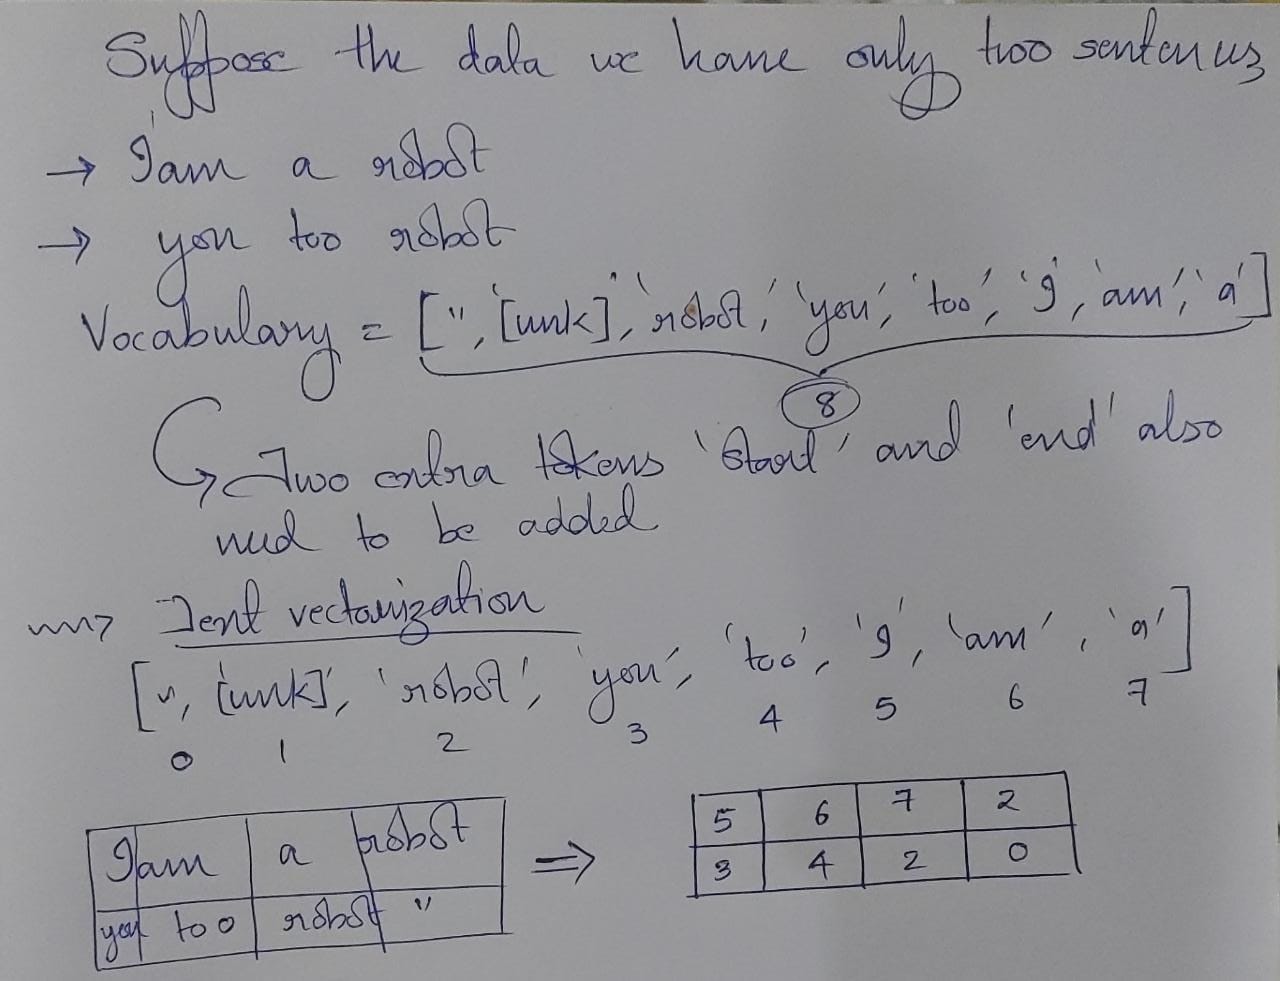 Suppose the data we have only two sentences
→ I am a robot
→ you too robot
Vocabulary = ['', '[unk]', 'robot', 'you', 'too', 'I', 'am', 'a']
8
Two extra tokens 'start' and 'end' also
need to be added
Text vectorization
['', [unk], 'robot', 'you', 'too', 'I', 'am', 'a']
0 1 2 3 4 5 6 7
I am a robot ⇒ 5 6 7 2
you too robot '' 3 4 2 0